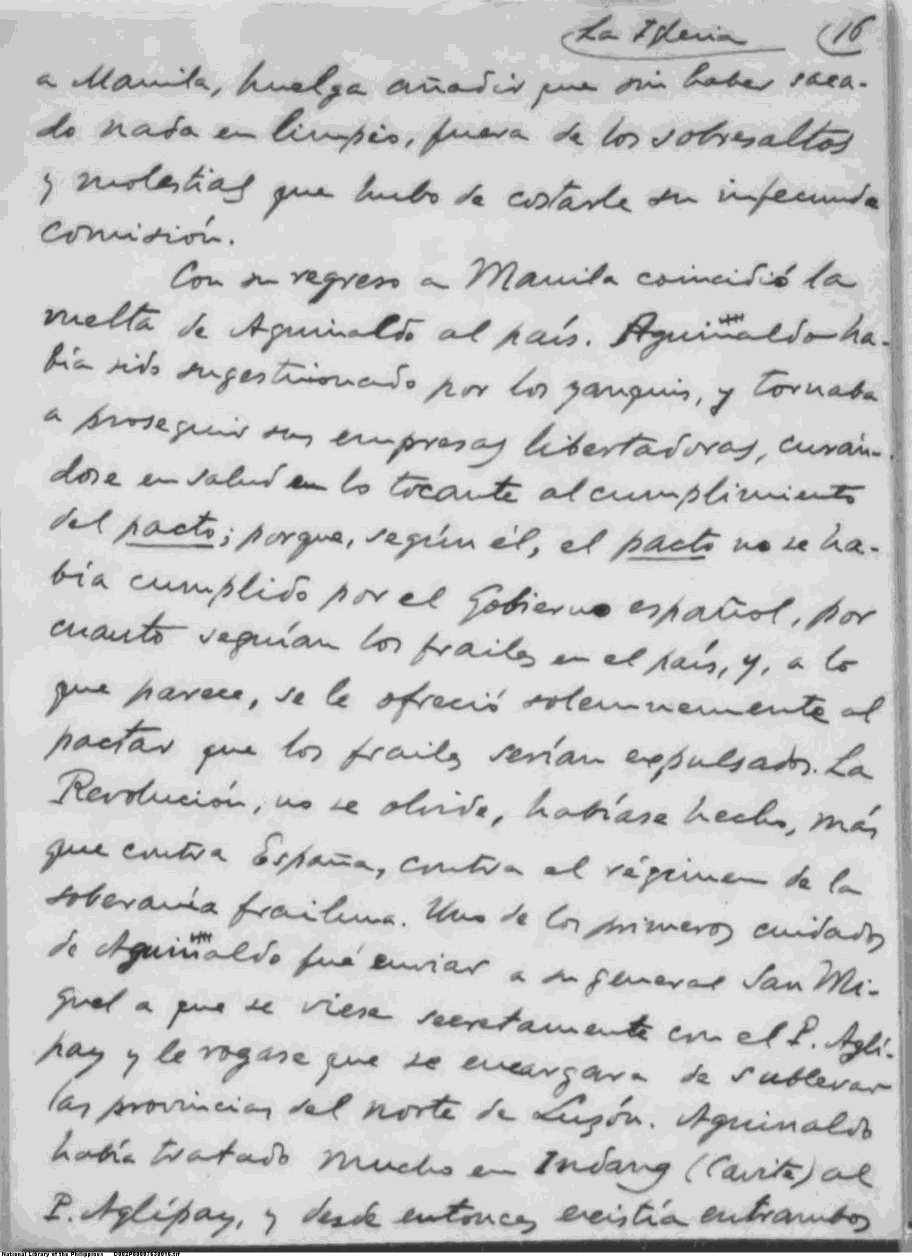 La Iglesia (16
a Manila, huelga añadir que sin haber saca-
do nada en limpio, fuera de los sobresaltos
y molestias que hubo de costarle su infecunda
comisión.
Con su regreso a Manila coincidió la
vuelta de Aguinaldo al país. Aguinaldo ha-
bía sido sugestionado por los yanquis, y tornaba
a proseguir sus empresas libertadoras, curán-
dose en salud en lo tocante al cumplimiento
del pacto; porque, según él, el pacto no se ha-
bía cumplido por el Gobierno español, por
cuanto seguían los frailes en el país, y, a lo
que parece, se le ofreció solemnemente al
pactar que los frailes serían expulsados. La
Revolución, no se olvide, habíase hecho, más
que contra España, contra el régimen de la
soberanía frailuna. Uno de los primeros cuidados
de Aguinaldo fué enviar a su general San Mi-
guel a que se viese secretamente con el P. Aglí-
pay y le rogase que se encargara de sublevar
las provincias del norte de Luzón. Aguinaldo
había tratado mucho en Indang (Cavite) al
P. Aglípay, y desde entonces existía entrambos
National Library of the Philippines